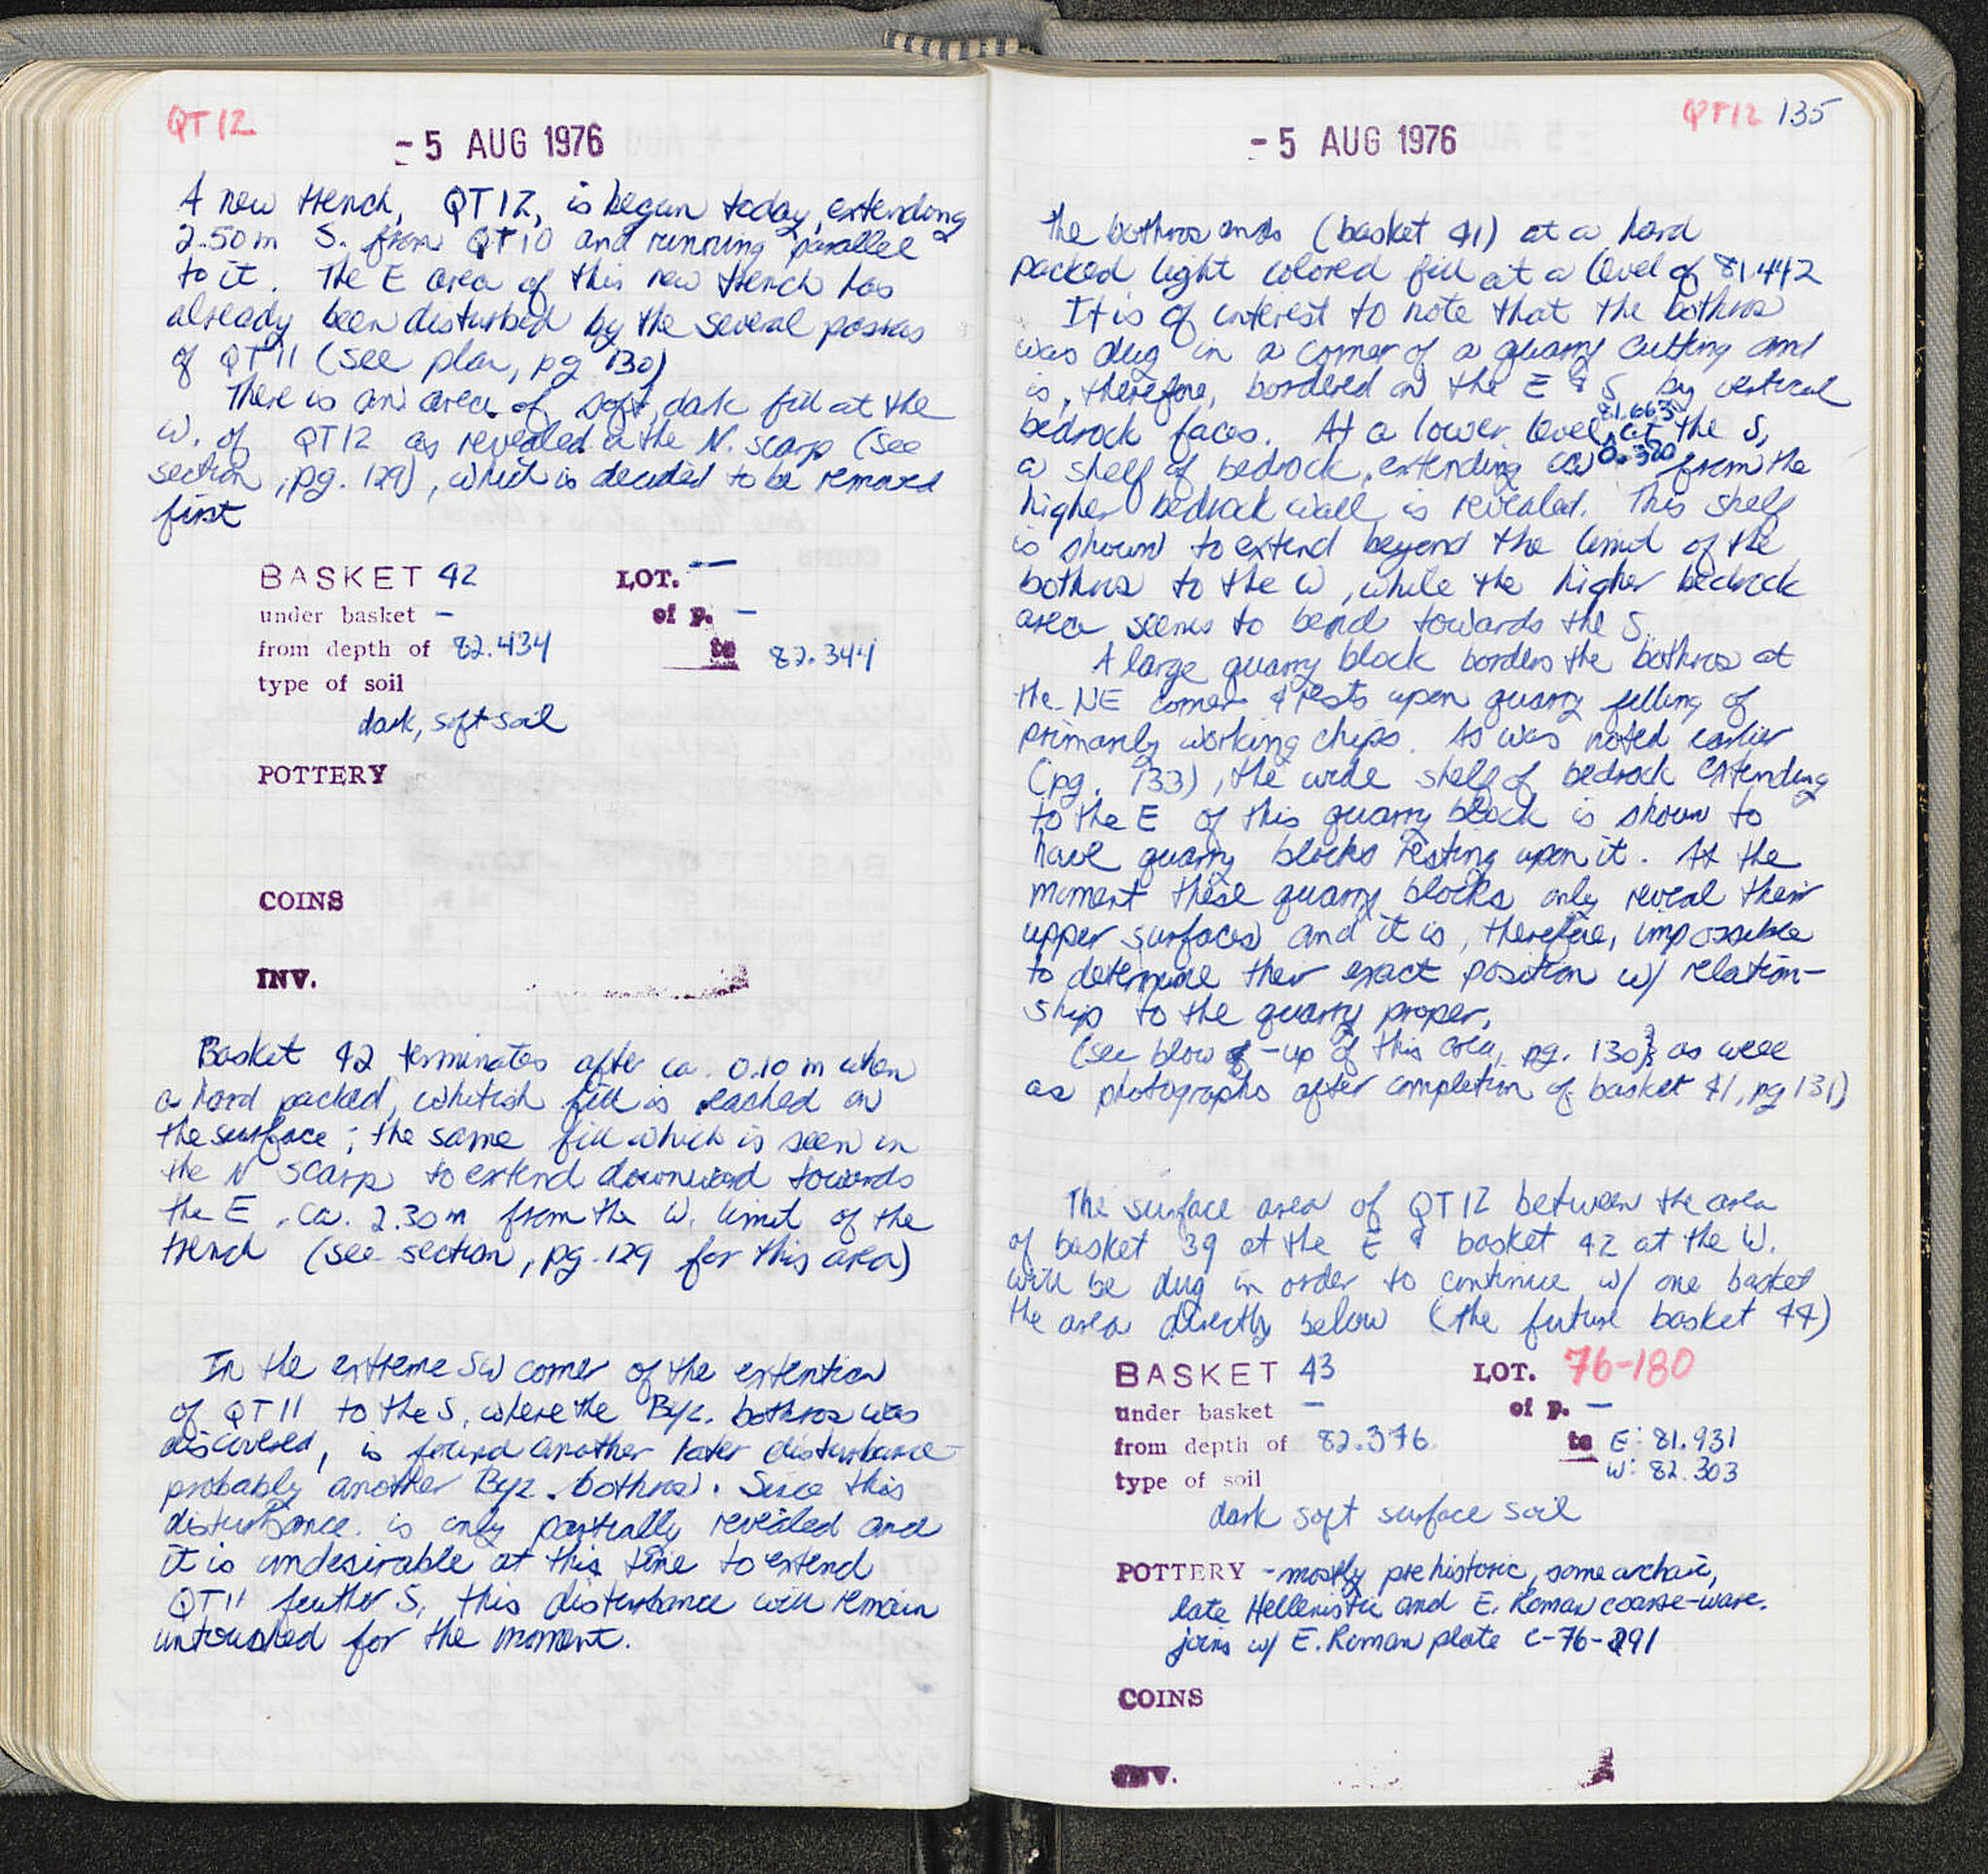 QT12
-5 AUG 1976
A new trench, QT12, is began today, extending
2.50m S. from QT10 and running parallel
to it. The E area of this new trench has
already been disturbed by the several passes
of QT11 (see plan, pg 130)
There is an area of soft, dark fill at the
W. of QT12 as revealed in the N. scarp (see
section, pg. 129), which is decided to be removed
first
BASKET 42 LOT. —
under basket – of p. –
from depth of 82.434 to 82.344
type of soil
dark, soft soil
POTTERY
COINS
INV.
Basket 42 terminates after ca. 0.10 m when
a hard packed, whitish fill is reached on
the surface; the same fill which is seen in
the N scarp to extend downward towards
the E, ca. 2.30m from the W. limit of the
trench (see section, pg. 129 for this area)
In the extreme SW corner of the extention
of QT11 to the S, where the Byz. bothros was
discovered, is found another later disturbance –
probably another Byz. bothros. Since this
disturbance is only partially revealed and
it is undesirable at this time to extend
QT11 further S, this disturbance will remain
untouched for the moment.
QT12 135
-5 AUG 1976
the bothros ends (basket 41) at a hard
packed light colored fill at a level of 81.442
It is of interest to note that the bothros
was dug in a corner of a quarry cutting and
is, therefore, bordered on the E & S by vertical
bedrock faces. At a lower level 81.663 at the S,
a shelf of bedrock, extending ca 0.320 from the
higher bedrock wall is revealed. This shelf
is shown to extend beyond the limit of the
bothros to the W, while the higher bedrock
area seems to bend towards the S.
A large quarry block borders the bothros at
the NE corner & rests upon quarry filling of
primarily working chips. As was noted earlier
(pg. 133), the wide shelf of bedrock extending
to the E of this quarry block is shown to
have quarry blocks resting upon it. At the
moment these quarry blocks only reveal their
upper surfaces and it is, therefore, impossible
to determine their exact position w/ relation-
ship to the quarry proper.
(see blow-up of this area, pg. 130; as well
as photographs after completion of basket 41, pg 131)
The surface area of QT12 between the area
of basket 39 at the E & basket 42 at the W.
will be dug in order to continue w/ one basket
the area directly below (the future basket 44)
BASKET 43 LOT. 76-180
under basket – of p. –
from depth of 82.376 to E: 81.931
W: 82.303
type of soil
dark soft surface soil
POTTERY - mostly prehistoric, some archaic,
late Hellenistic and E. Roman coarse-ware.
joins w/ E. Roman plate C-76-291
COINS
INV.